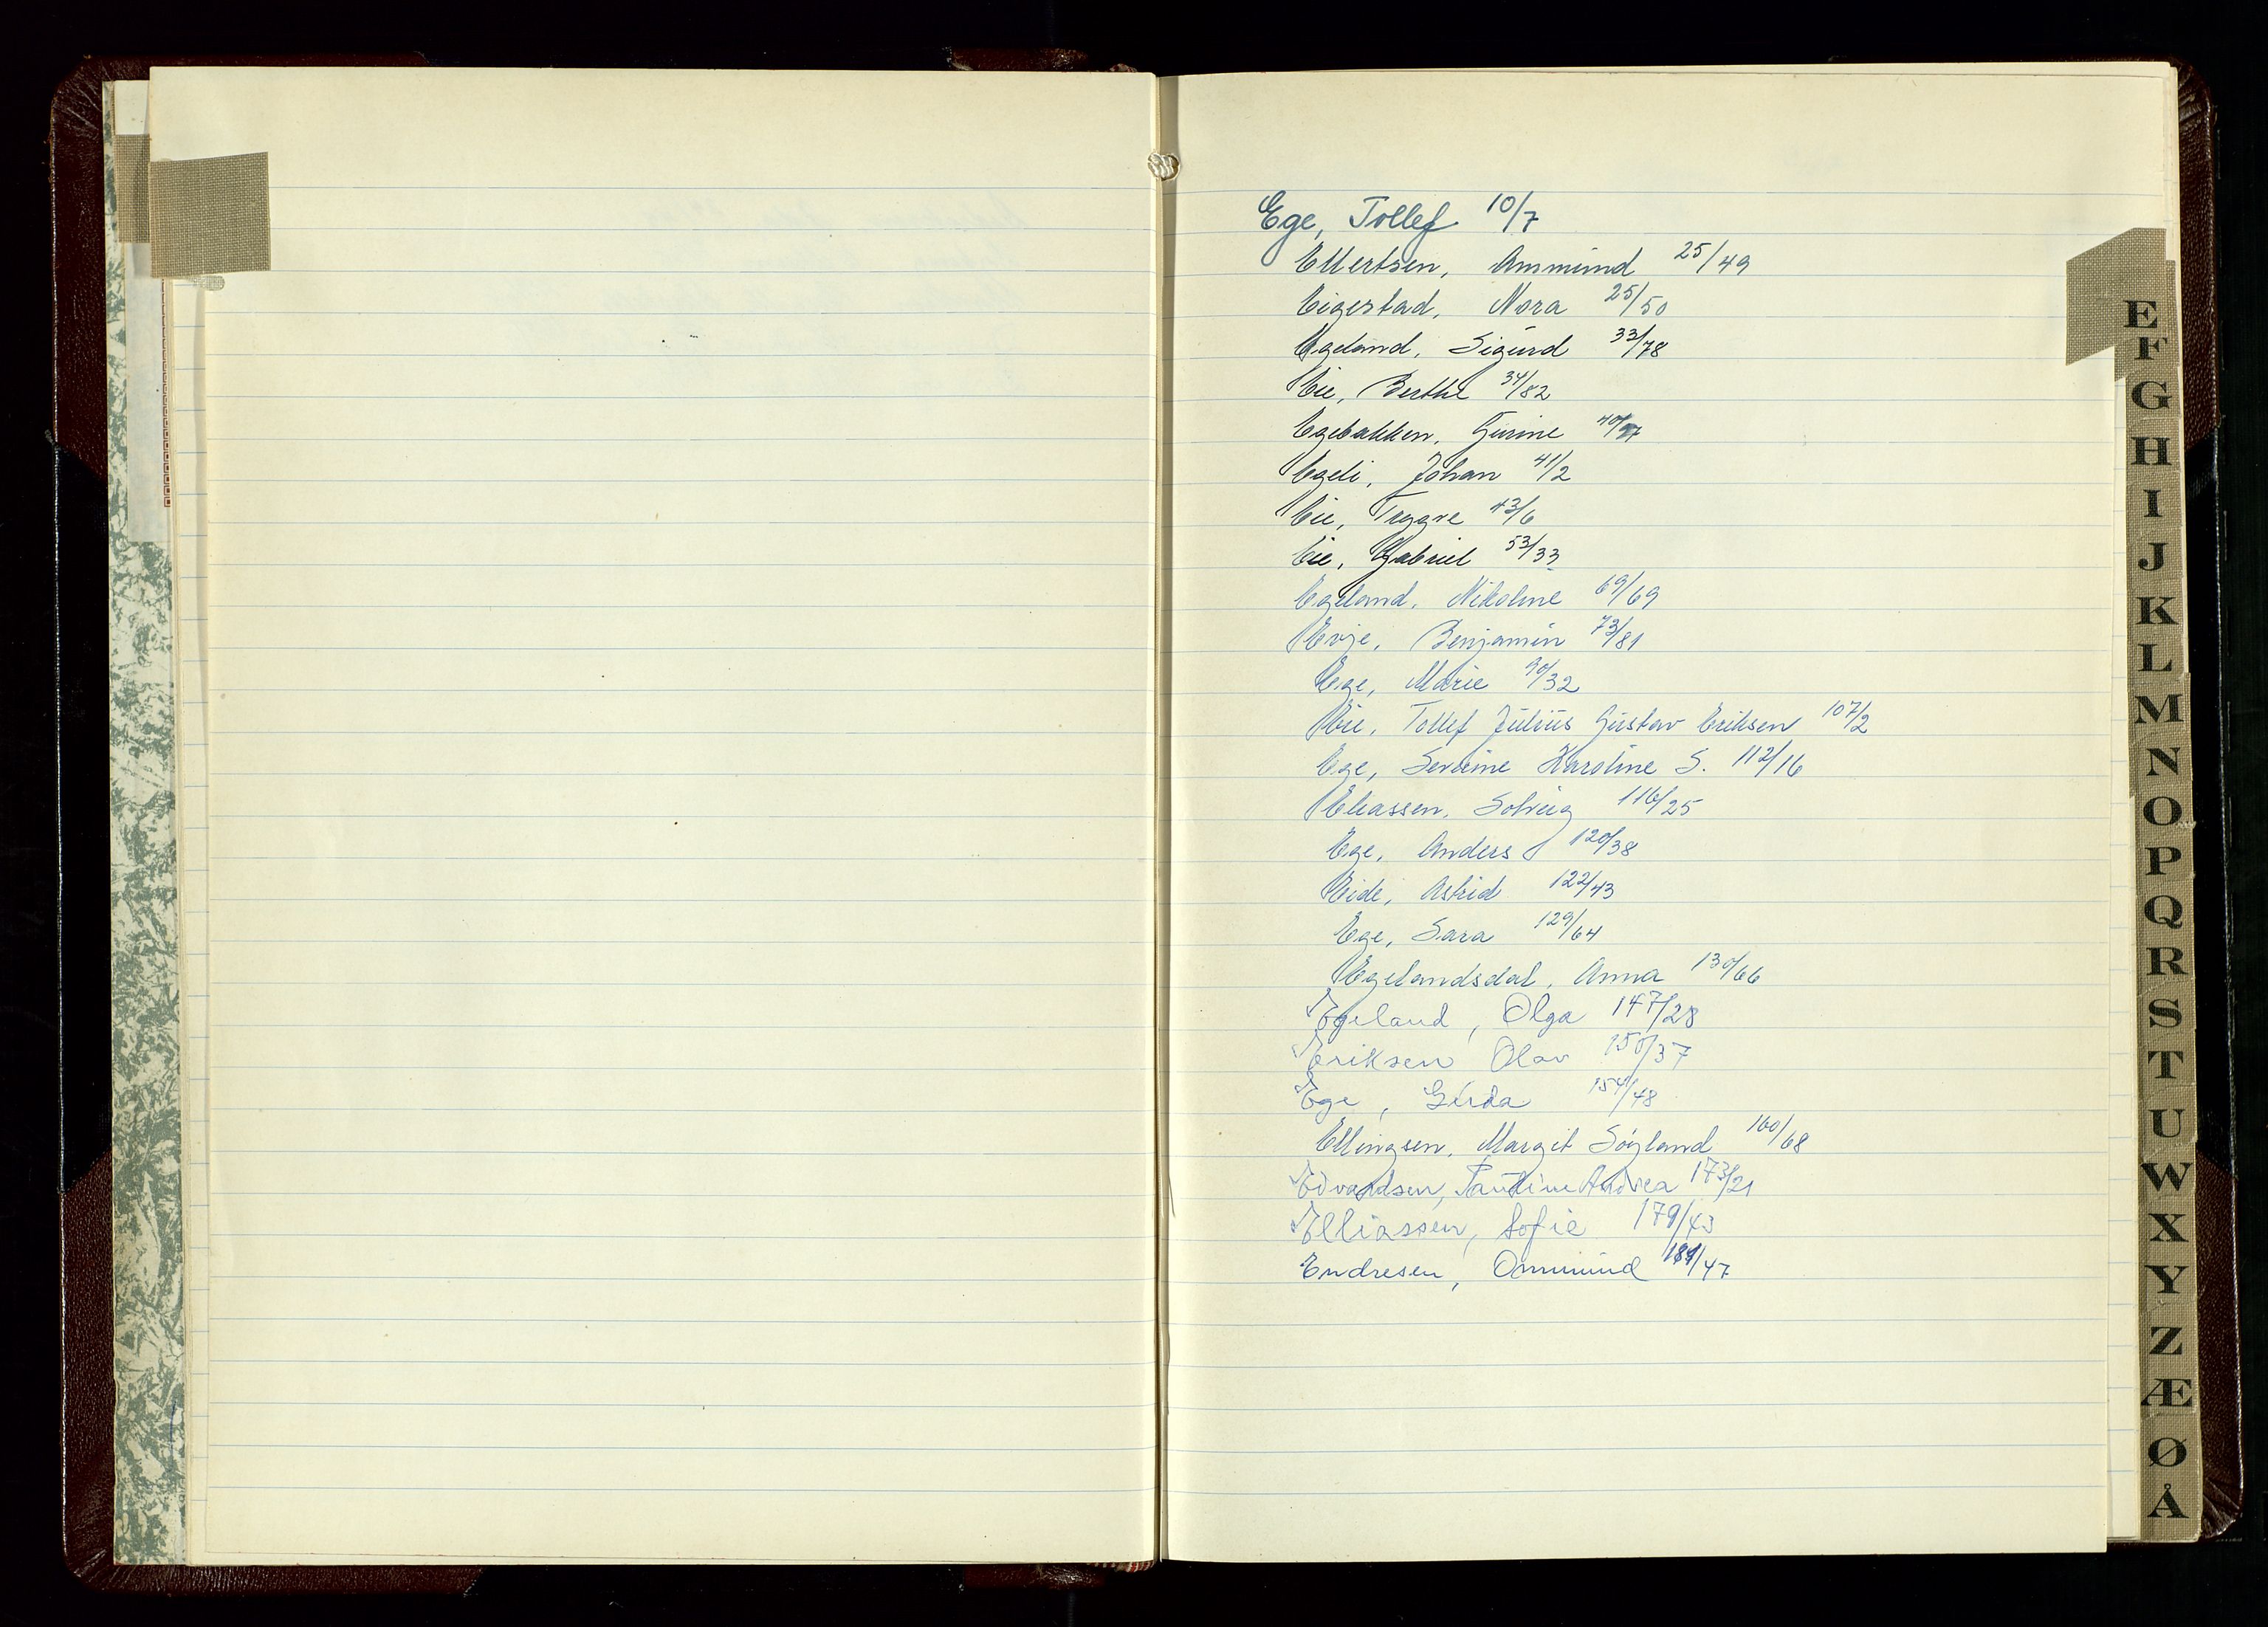 Ege, Tollef 10/7
Ellertsen, Ommund 25/49
Eigestad, Nora 25/50
Egeland, Sigurd 33/78
Eie, Berthe 34/82
Egebakken, Gurine 40/97
Egeli, Johan 41/2
Eie, Trygve 43/6
Eie, Gabriel 53/33
Egeland, Nikoline 69/69
Evje, Benjamin 73/81
Ege, Marie 90/32
Eie, Tollef Julius Gustav Eriksen 107/2
Ege, Severine Karoline S. 112/16
Eliassen, Solveig 116/25
Ege, Anders 120/38
Eide, Astrid 122/43
Ege, Sara 129/64
Egelandsdal, Anna 130/66
Egeland, Olga 147/28
Eriksen Olav 150/37
Ege, Gerda 154/48
Ellingsen, Margit Søyland 160/68
Edvardsen, Tautine Andrea 173/21
Elliassen, Sofie 179/43
Endresen, Ommund 181/47
E
F
G
H
I
J
K
L
M
N
O
P
Q
R
S
T
U
W
X
Y
Z
Æ
Ø
Å